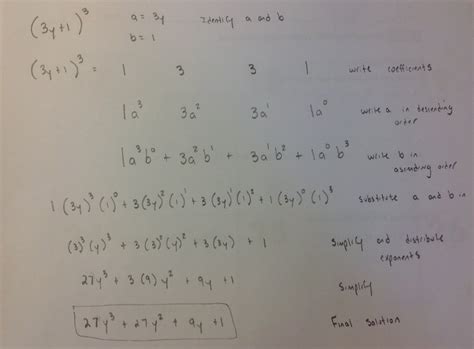 (3y+1)³ a = 3y Identify a and b
b = 1
(3y+1)³ = 1 3 3 1 write coefficients
1a³ 3a² 3a¹ 1a⁰ write a in descending order
1a³b⁰ + 3a²b¹ + 3a¹b² + 1a⁰b³ write b in ascending order
1(3y)³(1)⁰ + 3(3y)²(1)¹ + 3(3y)¹(1)² + 1(3y)⁰(1)³ substitute a and b in
(3)³(y)³ + 3(3)²(y)² + 3(3y) + 1 Simplify and distribute exponents
27y³ + 3(9)y² + 9y + 1 Simplify
27y³ + 27y² + 9y + 1 Final Solution